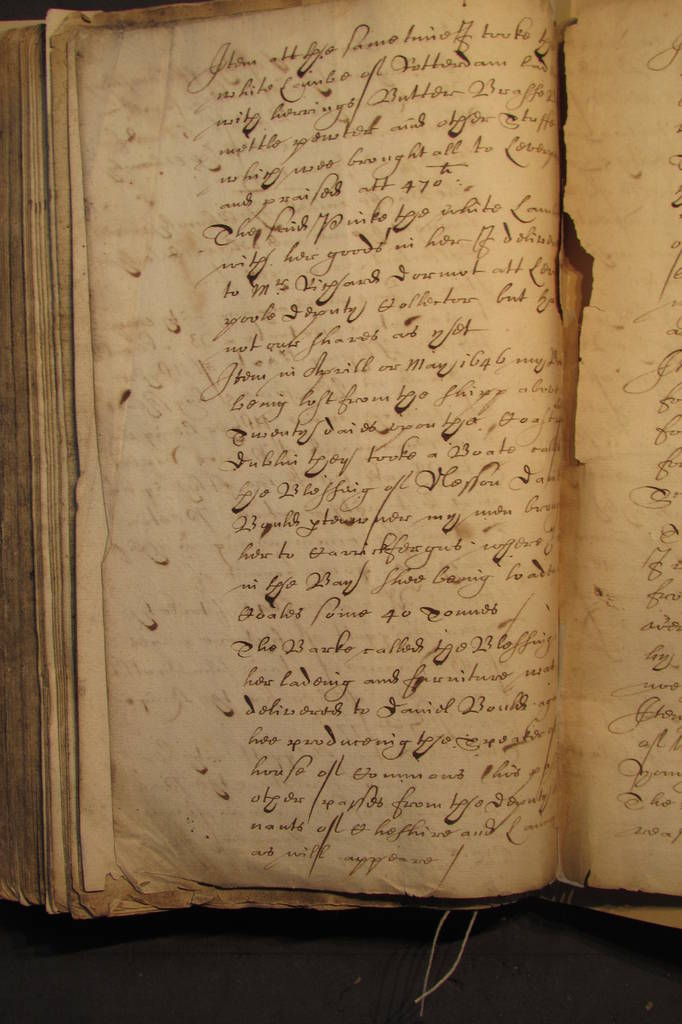 Item att the same time I tooke th
white Lambe of Rotterdam lad
with herrings Butter Brasse
mettle pewter and other Stuffe
which wee brought all to Leverp
and praised att 470li
The said Pinke the white Lam
with her goods in her I deliver
to Mr Richard Dormot att Lev
poole deputy Collector but h
not our shares as yset
Item in Aprill or May 1646 my
being lost from the shipp abov
Twenty daies upon the Coast
Dublin they tooke a Boate call
the Blessing of Nesson Dan
Bould pte owner my men brou
her to Carrickfergus where
in the Bay shee being load
Coales some 40 Tonnes
The Barke called the Blessing
her ladeing and furniture wa
delivered to Daniel Bould
hee produceing the Speaker
house of Commons his p
other passes from the deputy
nants of Cheshire and Lan
as will appeare